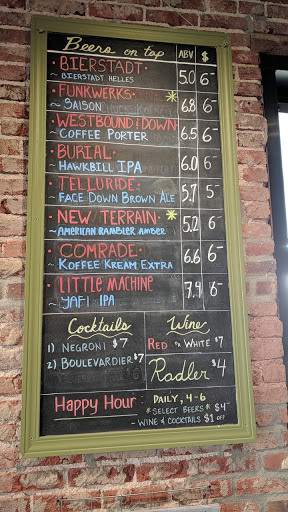 Beers on tap ABV $
• BIERSTADT •
~ BIERSTADT HELLES 5.0 6-
• FUNKWERKS • *
~ SAISON 6.8 6-
• WESTBOUND & DOWN •
~ COFFEE PORTER 6.5 6-
• BURIAL •
~ HAWKBILL IPA 6.0 6-
• TELLURIDE •
~ FACE DOWN BROWN ALE 5.7 5-
• NEW TERRAIN • *
~ AMERICAN RAMBLER AMBER 5.2 6-
• COMRADE •
~ KOFFEE KREAM EXTRA 6.6 6-
• LITTLE MACHINE
~ YAFI IPA 7.4 6-
Cocktails
1) NEGRONI $7
2) BOULEVARDIER $7
Wine
RED OR WHITE $7
Radler $4
Happy Hour: DAILY, 4-6
* SELECT BEERS * $4-
- WINE & COCKTAILS $1 OFF